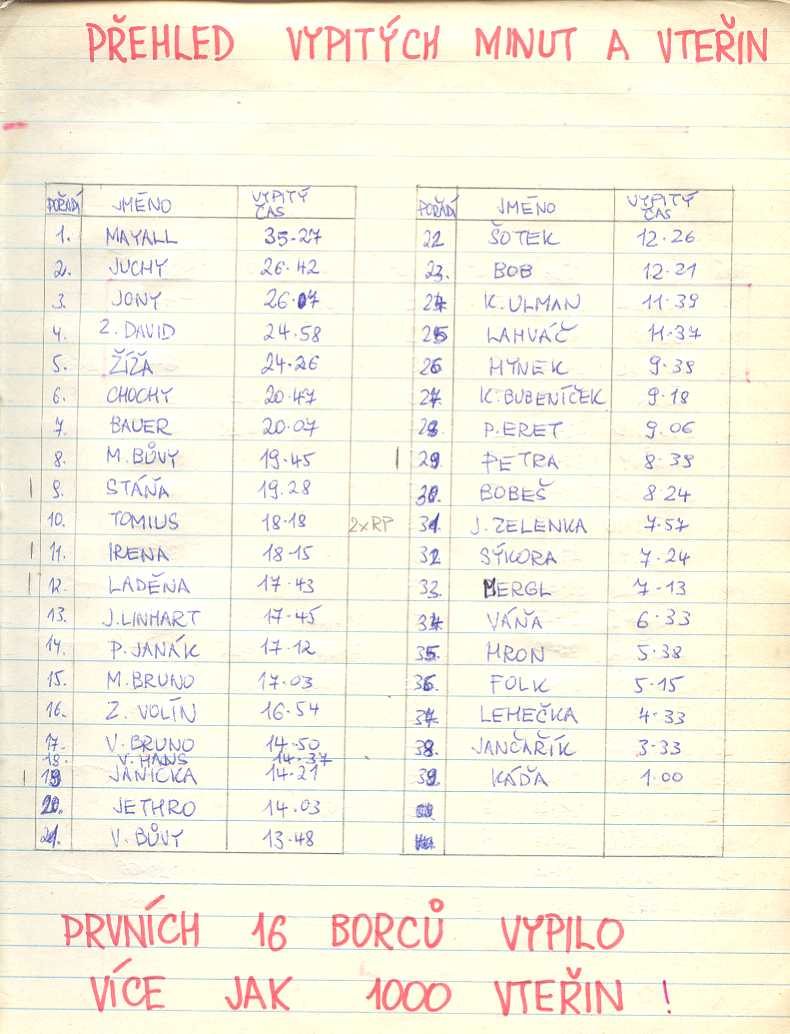 PŘEHLED VYPITÝCH MINUT A VTEŘIN
POŘADÍ JMÉNO VYPITÝ ČAS
1. MAYALL 35·27
2. JUCHY 26·42
3. JONY 26·07
4. Z. DAVID 24·58
5. ŽÍŽA 24·26
6. CHOCHY 20·47
7. BAUER 20·07
8. M. BŮVY 19·45
9. STÁŇA 19.28
10. TOMIUS 18·18 2xRP
11. IRENA 18·15
12. LADĚNA 17·43
13. J. LINHART 17·45
14. P. JANÁK 17·12
15. M. BRUNO 17·03
16. Z. VOLÍN 16·54
17. V. BRUNO 14·50
18. V. HANS 14·37
19. JANIČKA 14·21
20. JETHRO 14·03
21. V. BŮVY 13·48
POŘADÍ JMÉNO VYPITÝ ČAS
22 ŠOTEK 12·26
23. BOB 12·21
24 K. ULMAN 11·39
25 LAHVÁČ 11·37
26 HYNEK 9·38
27 K. BUBENÍČEK 9·18
28 P. ERET 9.06
29 PETRA 8·39
30. BOBEŠ 8·24
31 J. ZELENKA 7·57
32 SÝKORA 7·24
33. MERGL 7·13
34 VÁŇA 6·33
35. HRON 5·38
36. FOLK 5·15
37. LEMEČKA 4·33
38. JANČAŘÍK 3·33
39. KÁĎA 1.00
PRVNÍCH 16 BORCŮ VYPILO
VÍCE JAK 1000 VTEŘIN !